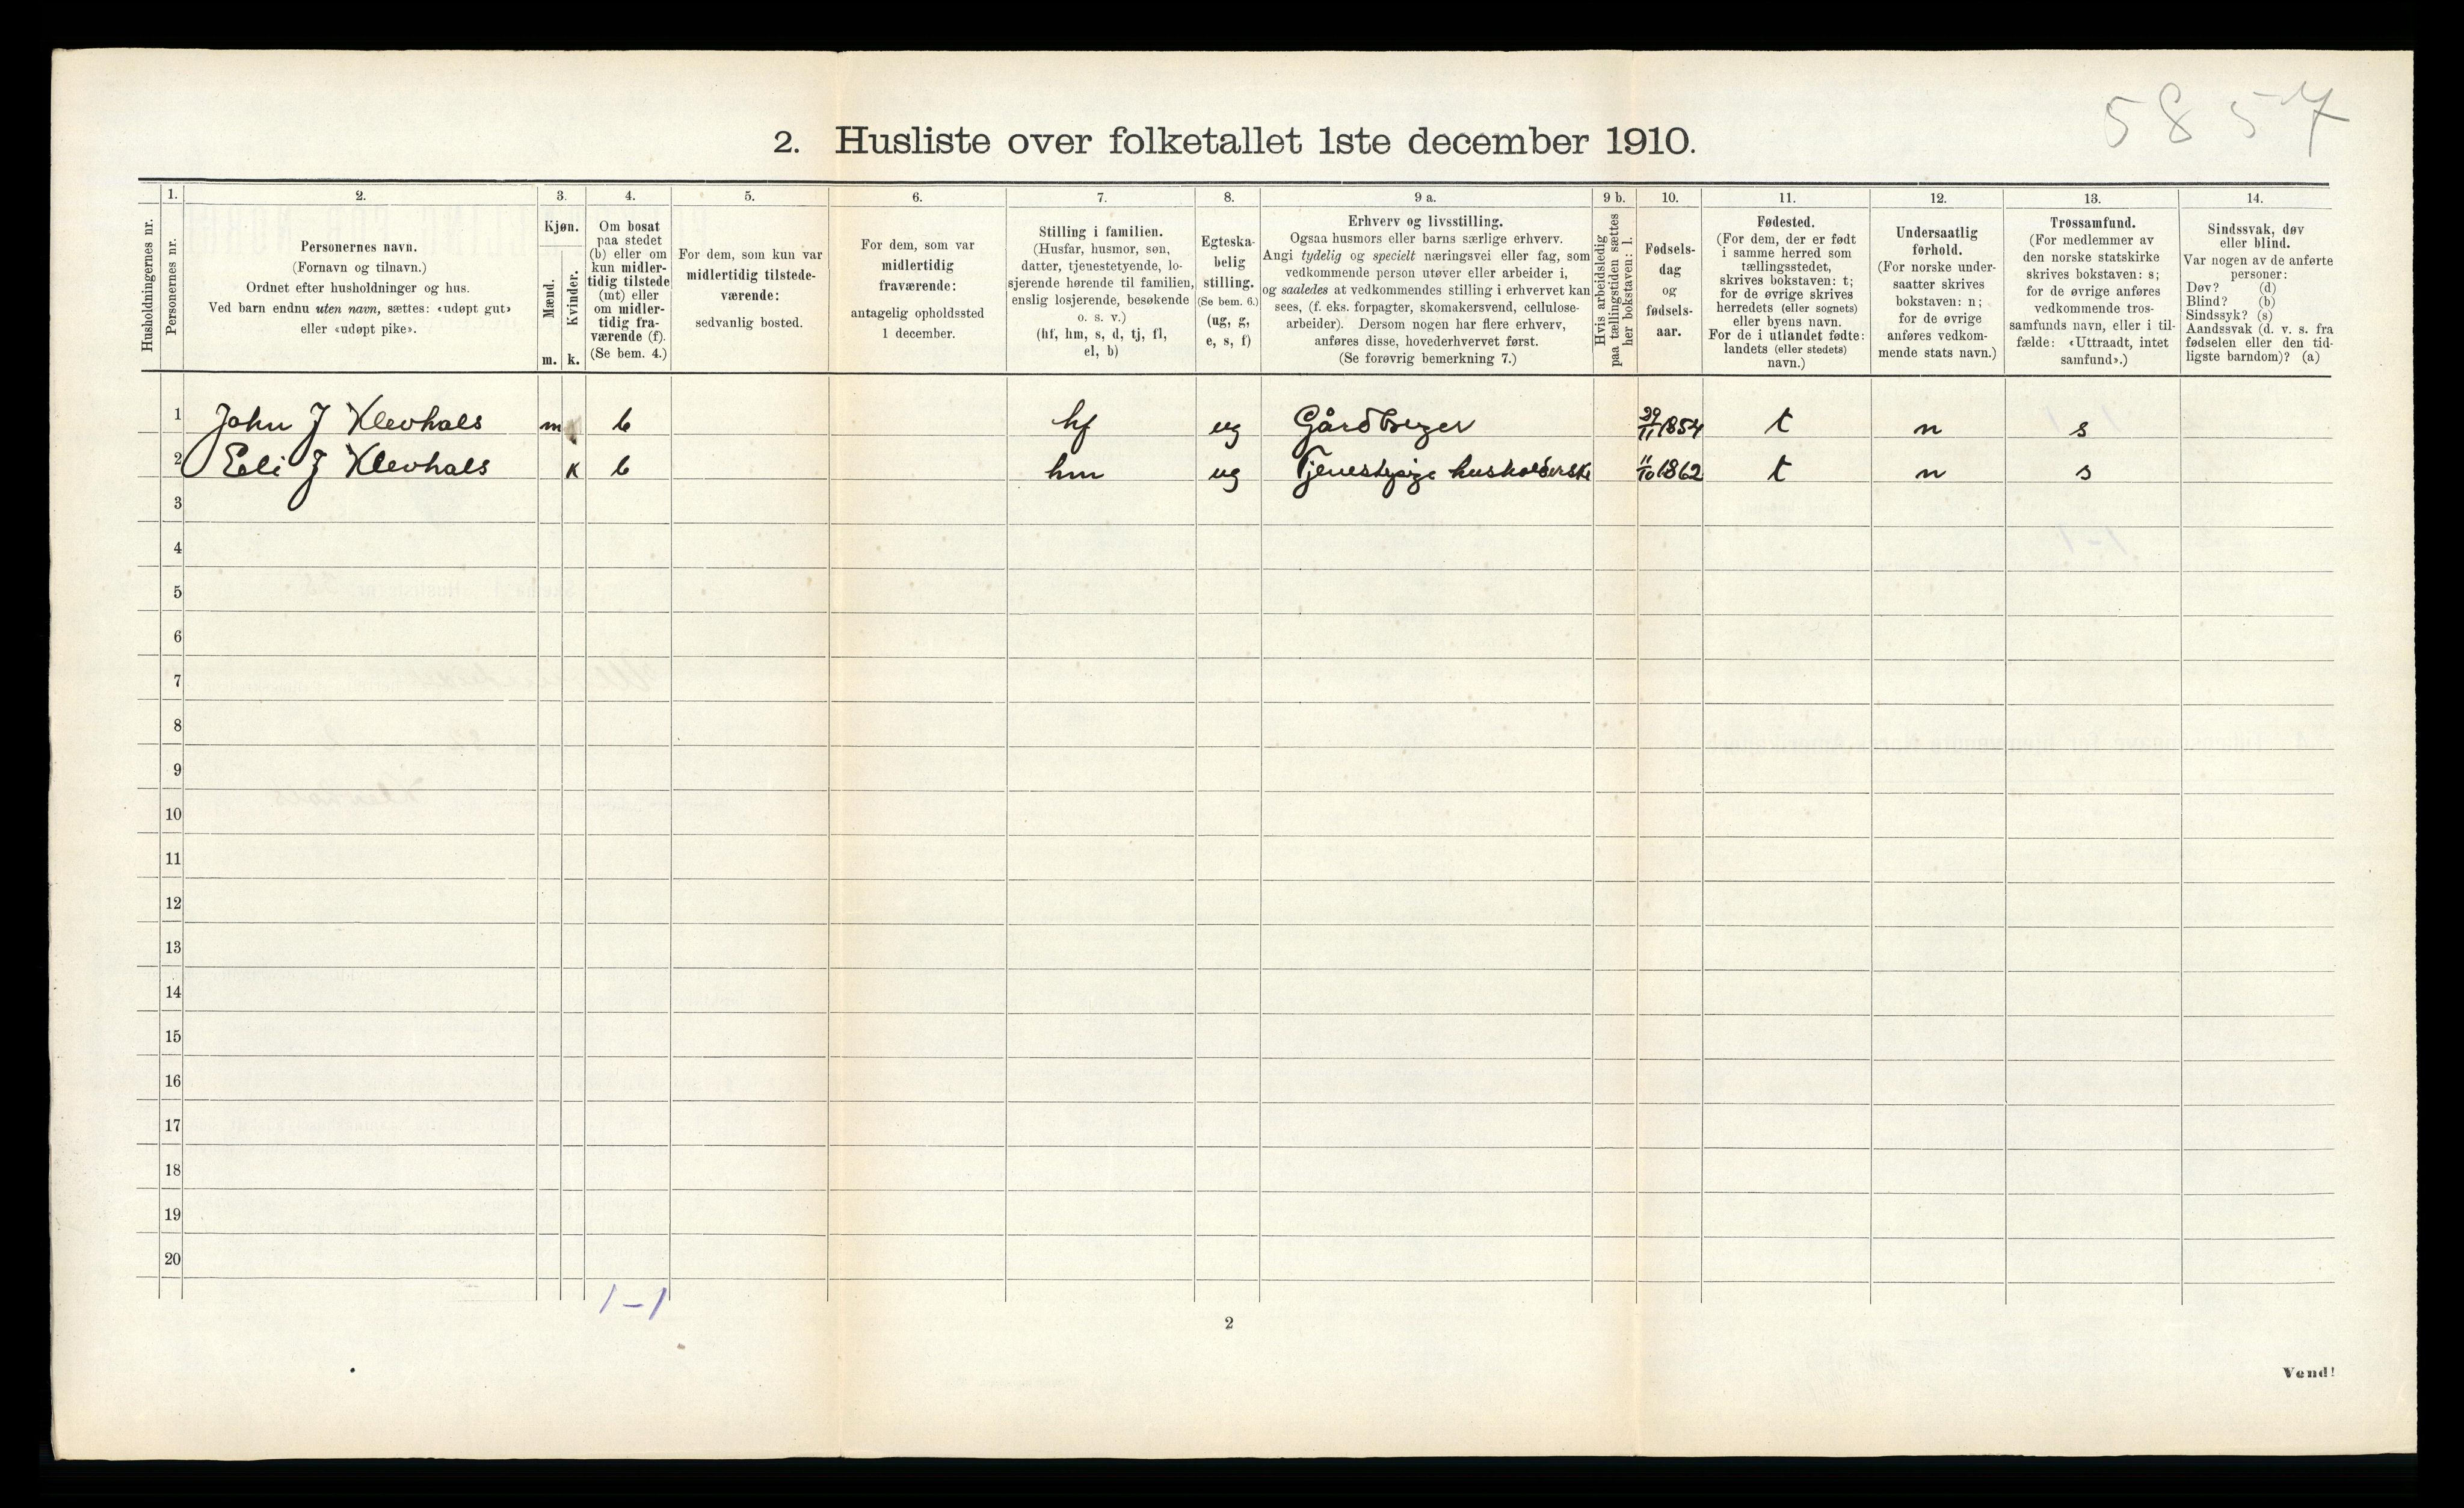 5857
2. Husliste over folketallet 1ste december 1910.
Husholdningernes nr.
1.
Personernes nr.
2.
Personernes navn.
(Fornavn og tilnavn.)
Ordnet efter husholdninger og hus.
Ved barn endnu uten navn, sættes: «udøpt gut»
eller «udøpt pike».
3.
Kjøn.
Mænd.
Kvinder.
m. k.
4.
Om bosat
paa stedet
(b) eller om
kun midler-
tidig tilstede
(mt) eller
om midler-
tidig fra-
værende (f).
(Se bem. 4.)
5.
For dem, som kun var
midlertidig tilstede-
værende:
sedvanlig bosted.
6.
For dem, som var
midlertidig
fraværende:
antagelig opholdssted
1 december.
7.
Stilling i familien.
(Husfar, husmor, søn,
datter, tjenestetyende, lo-
sjerende hørende til familien,
enslig losjerende, besøkende
o. s. v.)
(hf, hm, s, d, tj, fl,
el, b)
8.
Egteska-
belig
stilling.
(Se bem. 6.)
(ug, g,
e, s, f)
9 a.
Erhverv og livsstilling.
Ogsaa husmors eller barns særlige erhverv.
Angi tydelig og specielt næringsvei eller fag, som
vedkommende person utøver eller arbeider i,
og saaledes at vedkommendes stilling i erhvervet kan
sees, (f. eks. forpagter, skomakersvend, cellulose-
arbeider). Dersom nogen har flere erhverv,
anføres disse, hovederhvervet først.
(Se forøvrig bemerkning 7.)
9 b.
Hvis arbeidsledig
paa tællingstiden sættes
her bokstaven: l.
10.
Fødsels-
dag
og
fødsels-
aar.
11.
Fødested.
(For dem, der er født
i samme herred som
tællingsstedet,
skrives bokstaven: t;
for de øvrige skrives
herredets (eller sognets)
eller byens navn.
For de i utlandet fødte:
landets (eller stedets)
navn.)
12.
Undersaatlig
forhold.
(For norske under-
saatter skrives
bokstaven: n;
for de øvrige
anføres vedkom-
mende stats navn.)
13.
Trossamfund.
(For medlemmer av
den norske statskirke
skrives bokstaven: s;
for de øvrige anføres
vedkommende tros-
samfunds navn, eller i til-
fælde: «Uttraadt, intet
samfund».)
14.
Sindssvak, døv
eller blind.
Var nogen av de anførte
personer:
Døv? (d)
Blind? (b)
Sindssyk? (s)
Aandssvak (d. v. s. fra
fødselen eller den tid-
ligste barndom)? (a)
1 John J Klevhals m b hf ug Gårdbruger 29/11 1854 t n s
2 Eli J Klevhals k b hm ug Tjenestepige husholderske 11/10 1862 t n s
3
4
5
6
7
8
9
10
11
12
13
14
15
16
17
18
19
20
1-1
2
Vend!